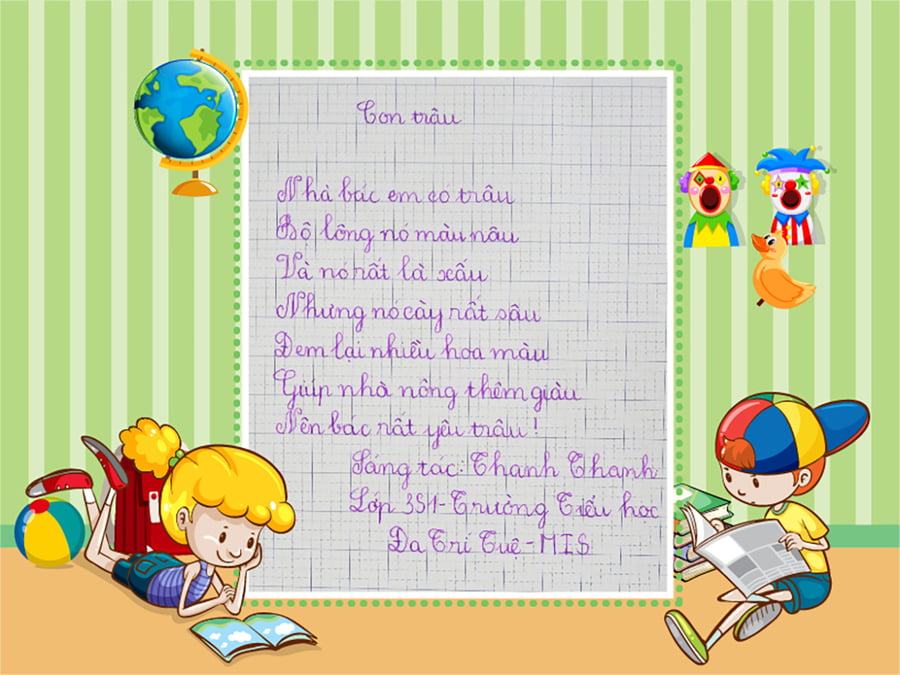 Con trâu
Nhà bác em có trâu
Bộ lông nó màu nâu
Và nó rất là xấu
Nhưng nó cày rất sâu
Đem lại nhiều hoa màu
Giúp nhà nông thêm giàu
Nên bác rất yêu trâu!
Sáng tác: Thanh Thanh
Lớp 3S1 - Trường Tiểu học
Đa Trí Tuệ - MIS